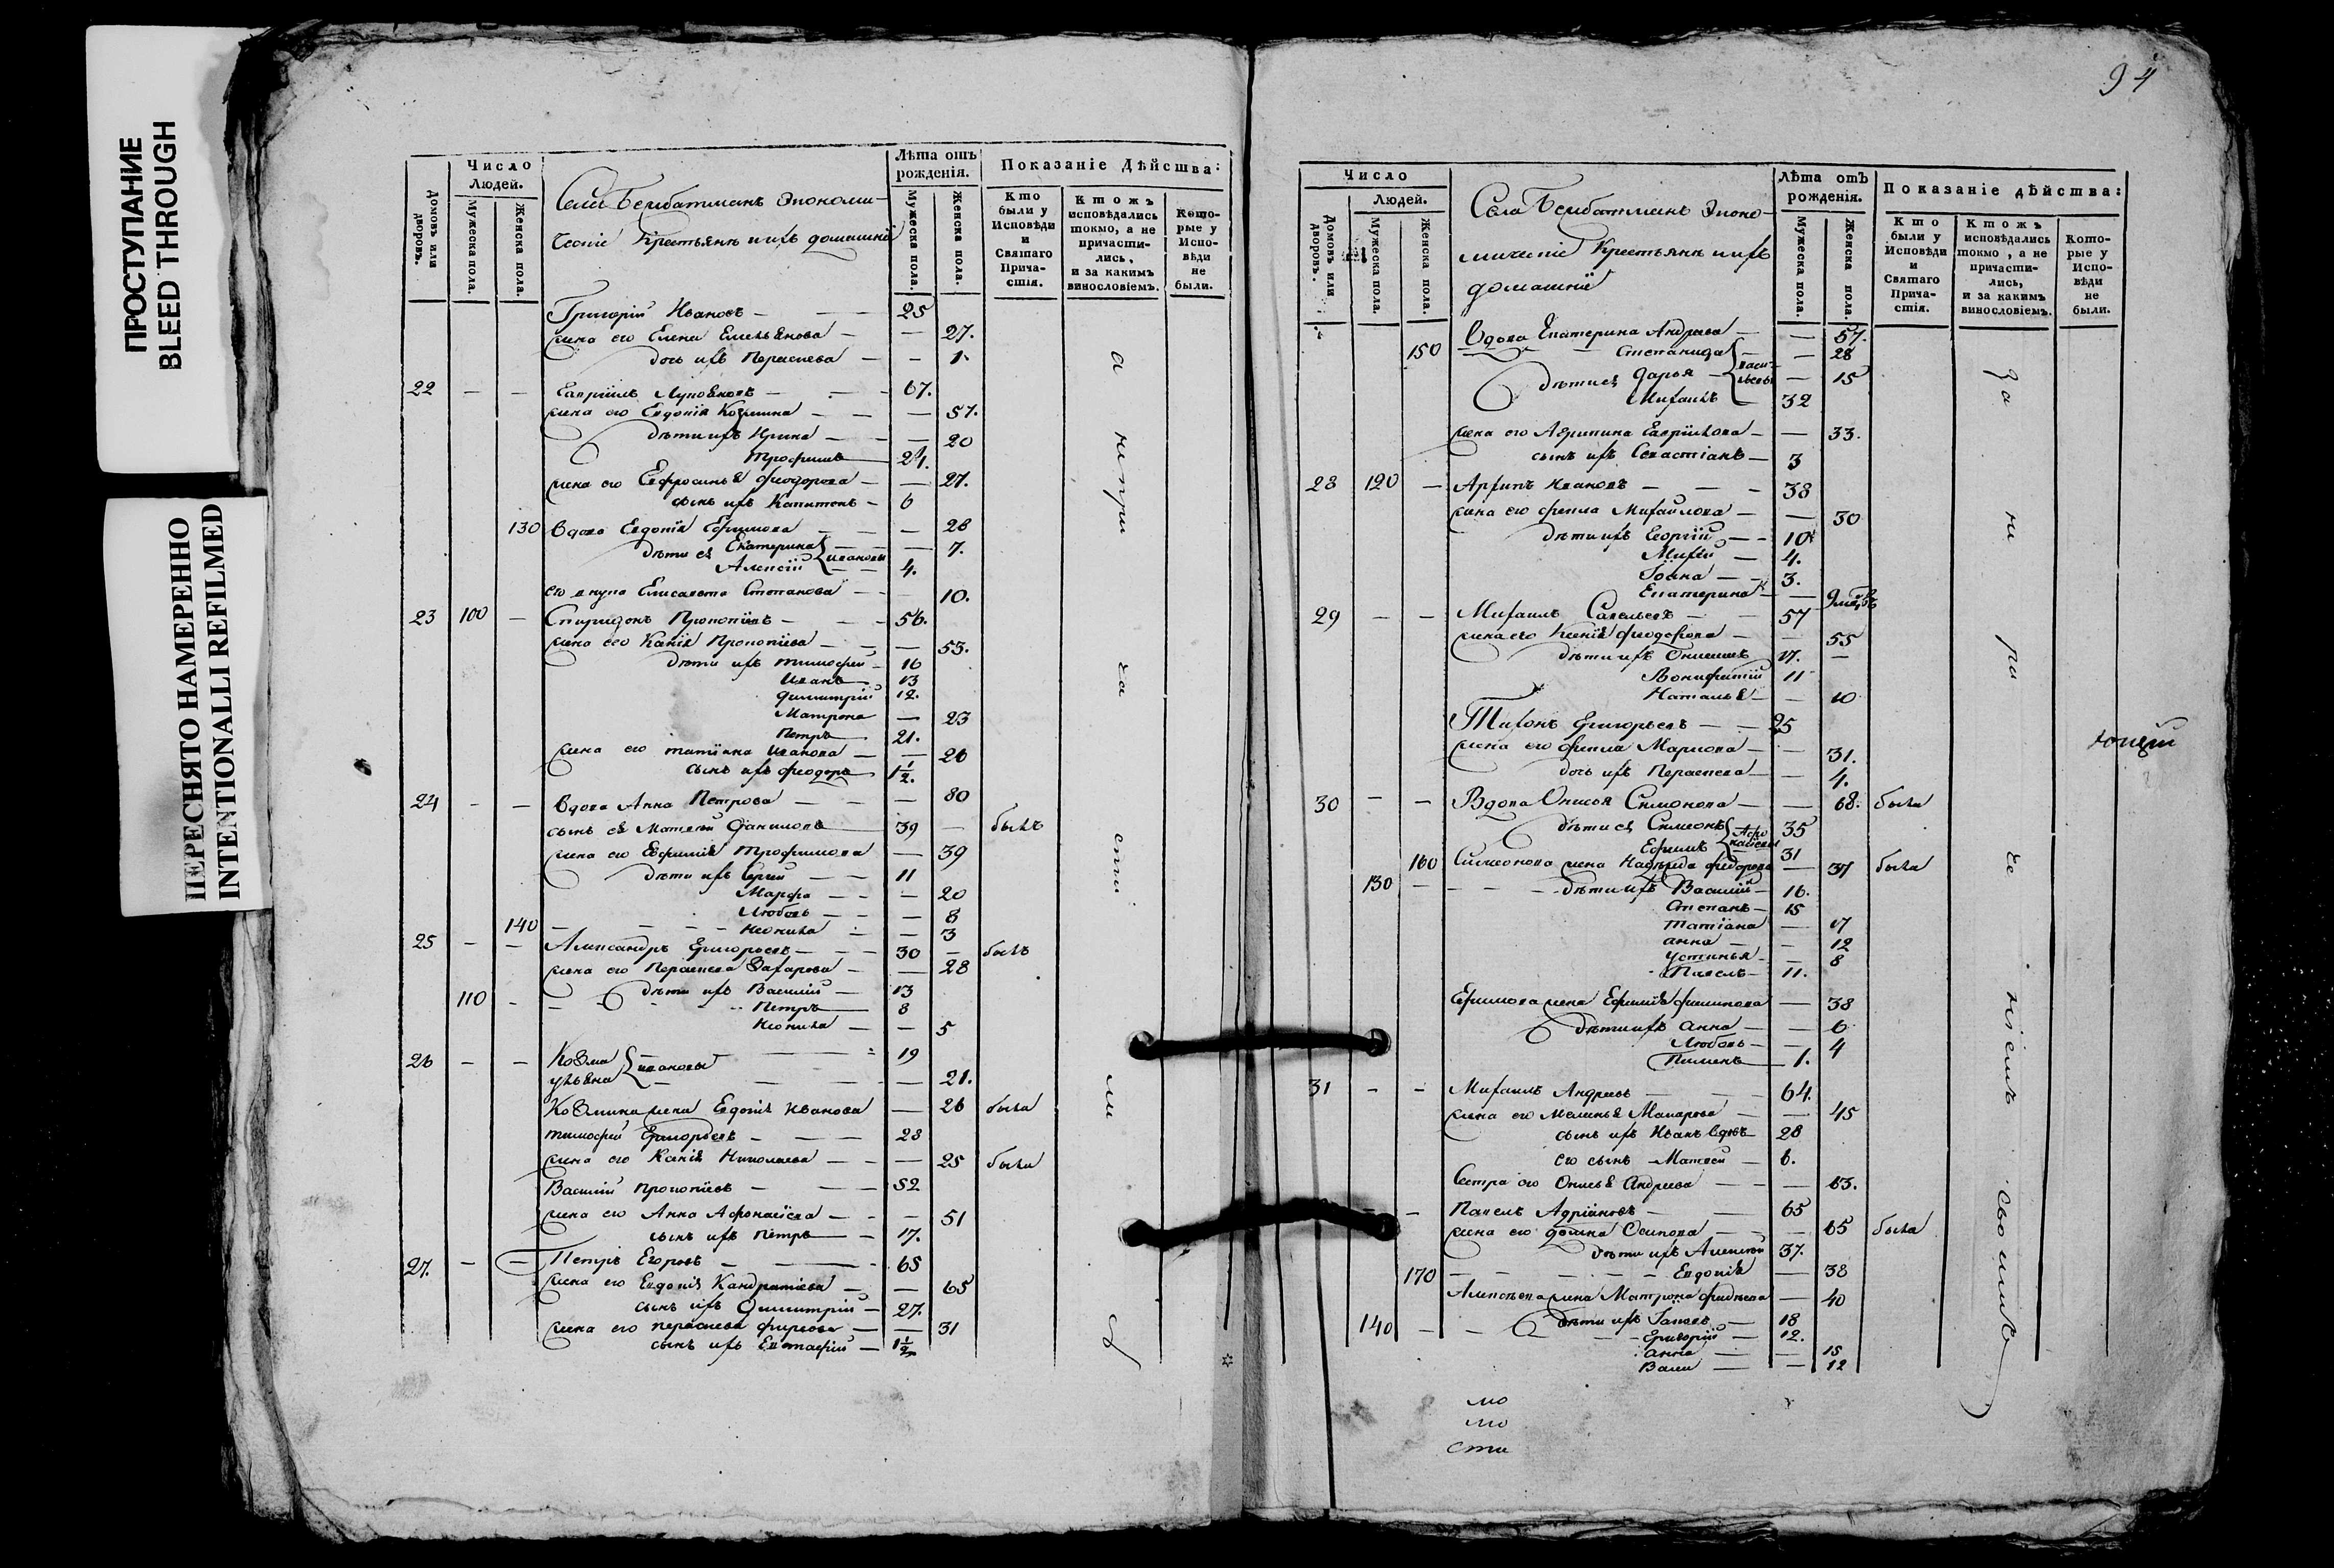 ПРОСТУПАНИЕ
BLEED THROUGH
ПЕРЕСНЯТО НАМЕРЕННО
INTENTIONALLI REFILMED
Число
Людей.
Домовъ или дворовъ.
Мужеска пола.
Женска пола.
Села Экономи-
ческіе Крестьянѣ и ихъ домашніе
Лѣта отъ рожденія.
Мужеска пола.
Женска пола.
Показаніе Дѣйства:
Кто были у Исповѣди и Святаго Прича-стія.
Ктожъ исповѣдались токмо, а не причасти-лись, и за какимъ винословіемъ.
Кото-рые у Испо-вѣди не были.
Григорій Ивановъ — 25
жена его Елена Емельянова — 27.
дочь ихъ Параскева — 1
22 — — Гавріилъ — 67.
жена его Евдокія Козмина — 57.
дѣти ихъ Ирина — 20
Трофимъ 24.
жена его Евфросинья Феодорова — 27.
сынъ ихъ Капитонъ — 6
130 вдова Евдокія Ефимова — 28
дѣти ея Екатерина — 7.
Алексій Ивановы 4.
его внука Елисавета Степанова — 10.
23 100 — Спиридонъ Прокопіевъ — 56.
жена его Ксенія Прокопіева — 53.
дѣти ихъ Тимофей — 16
Иванъ 13
Димитрій 12.
Матрона — 23
Петръ 21.
жена его Татіана Иванова — 26
сынъ ихъ Феодоръ 1½.
24 — — вдова Анна Петрова — 80
сынъ ея Матвей Даниловъ 39 — былъ
жена его Евфимія Трофимова — 39
дѣти ихъ Сергій — 11
Марфа — 20
Любовь — 8
140 — Неонила — 3
25 — — Александръ Григорьевъ — 30 — былъ
жена его Параскева Захарова — 28
дѣти ихъ Василій — 13
110 — Петръ 8
Неонила — 5
26 — — Козма Ивановы 19
Ульяна — 21.
Козмина жена Евдокія Иванова — 26 была
Тимофей Григорьевъ — 28
жена его Ксенія Николаева — 25 была
Василій Прокопіевъ — 52
жена его Анна Афонасіева — 51
сынъ ихъ Петръ — 17.
27. — — Петръ Егоровъ — 65
жена его Евдокія Кандратіева — 65
сынъ ихъ Димитрій — 27.
жена его Параскева Фирсова — 31
сынъ ихъ Евстафій — 1½
а не при ча сти ли с
94
Число
Людей.
Домовъ или дворовъ.
Мужеска пола.
Женска пола.
Села Эконо-
мическіе Крестьянѣ и ихъ
домашніе
Лѣта отъ рожденія.
Мужеска пола.
Женска пола.
Показаніе дѣйства:
Кто были у Исповѣди и Святаго Прича-стія.
Ктожъ исповѣдались токмо, а не причасти-лись, и за какимъ винословіемъ.
Кото-рые у Испо-вѣди не были.
вдова Екатерина Андреева — 57.
150 — Степанида — 28
дѣти ея Дарья Васильевы — 15
Михаилъ 32
жена его Агрипина Гавріилова — 33.
сынъ ихъ Севастіанъ — 3
28 120 — Архипъ Ивановъ — 38
жена его Фекла Михайлова — 30
дѣти ихъ Георгій — 10
4.
3.
Екатерина —
29 — — Михаилъ Савельевъ — 57
жена его Ксенія Феодорова — 55
дѣти ихъ Онисимъ 17. —
Вонифатій 11
Наталья — 10
Тихонъ Григорьевъ — 25
жена его Фекла Маркова — 31.
дочь ихъ Параскева — 4.
30 — — Вдова Симонова — 68. была
дѣти ея Симеонъ 35
Ефимъ 31
160 Симеонова жена Надежда Федорова — 37 была
130 — дѣти ихъ Василій — 16.
Степанъ — 15
Татіана — 17
Анна — 12
Устинья — 8
Павелъ — 11.
Ефимова жена Ефимія Филипова — 38
дѣти ихъ Анна — 6
Любовь — 4
Пименъ 1.
31 — — Михаилъ Андреевъ — 64.
жена его Меланья Макарова — 45
сынъ ихъ Иванъ вдовъ 28
его сынъ — Матвей — 6.
Сестра его Андреева — 63.
— Павелъ Адріановъ — 65
жена его Домна Осипова — 65 была
дѣти ихъ Алексѣй 37.
170 — Евдокія — 38
Алексѣева жена Матрона — 40
140 — дѣти ихъ 18
Григорій — 12.
Анна — 15
12
за не ра че ніемъ своимъ
мо
ло
сти